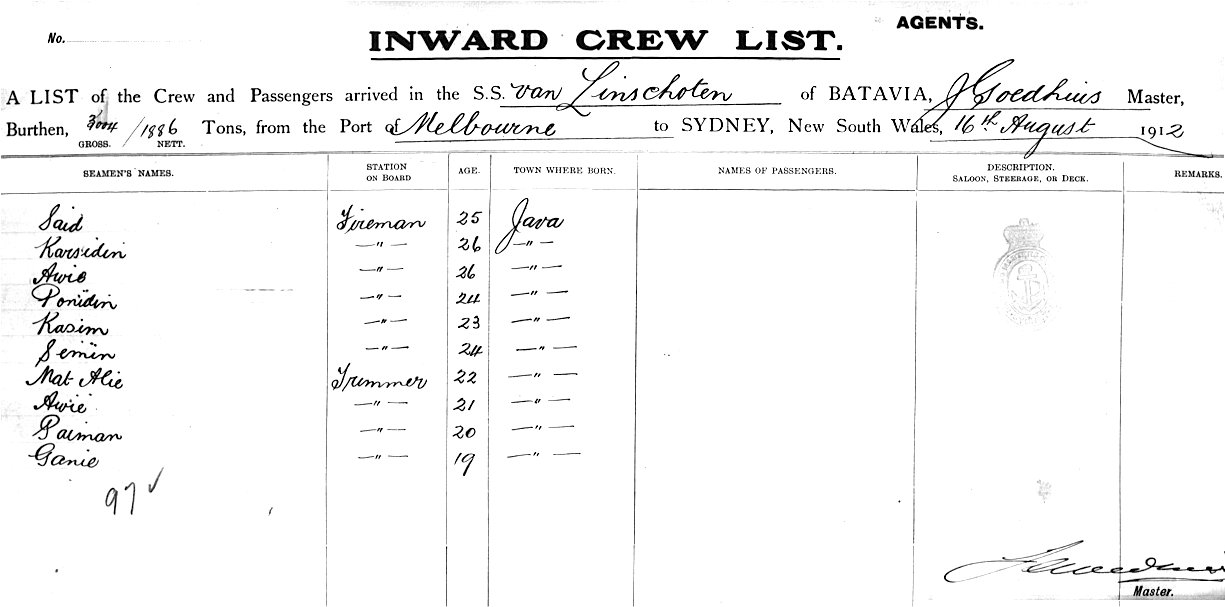 No.
AGENTS.
INWARD CREW LIST.
A LIST of the Crew and Passengers arrived in the S.S. van Linschoten of BATAVIA, J Goedhuis Master,
Burthen, /1886 Tons, from the Port of Melbourne to SYDNEY, New South Wales, 16th August 1912
GROSS. NETT.
SEAMEN'S NAMES. STATION ON BOARD AGE. TOWN WHERE BORN. NAMES OF PASSENGERS. DESCRIPTION. SALOON, STEERAGE, OR DECK. REMARKS.
Said Fireman 25 Java
Karsidin —"— 26 —"—
Awie —"— 26 —"—
Ponidin —"— 24 —"—
Kasim —"— 23 —"—
Semin —"— 24 —"—
Mat Alie Trimmer 22 —"—
Awie —"— 21 —"—
Paiman —"— 20 —"—
Ganie —"— 19 —"—
97 ✓
Master.